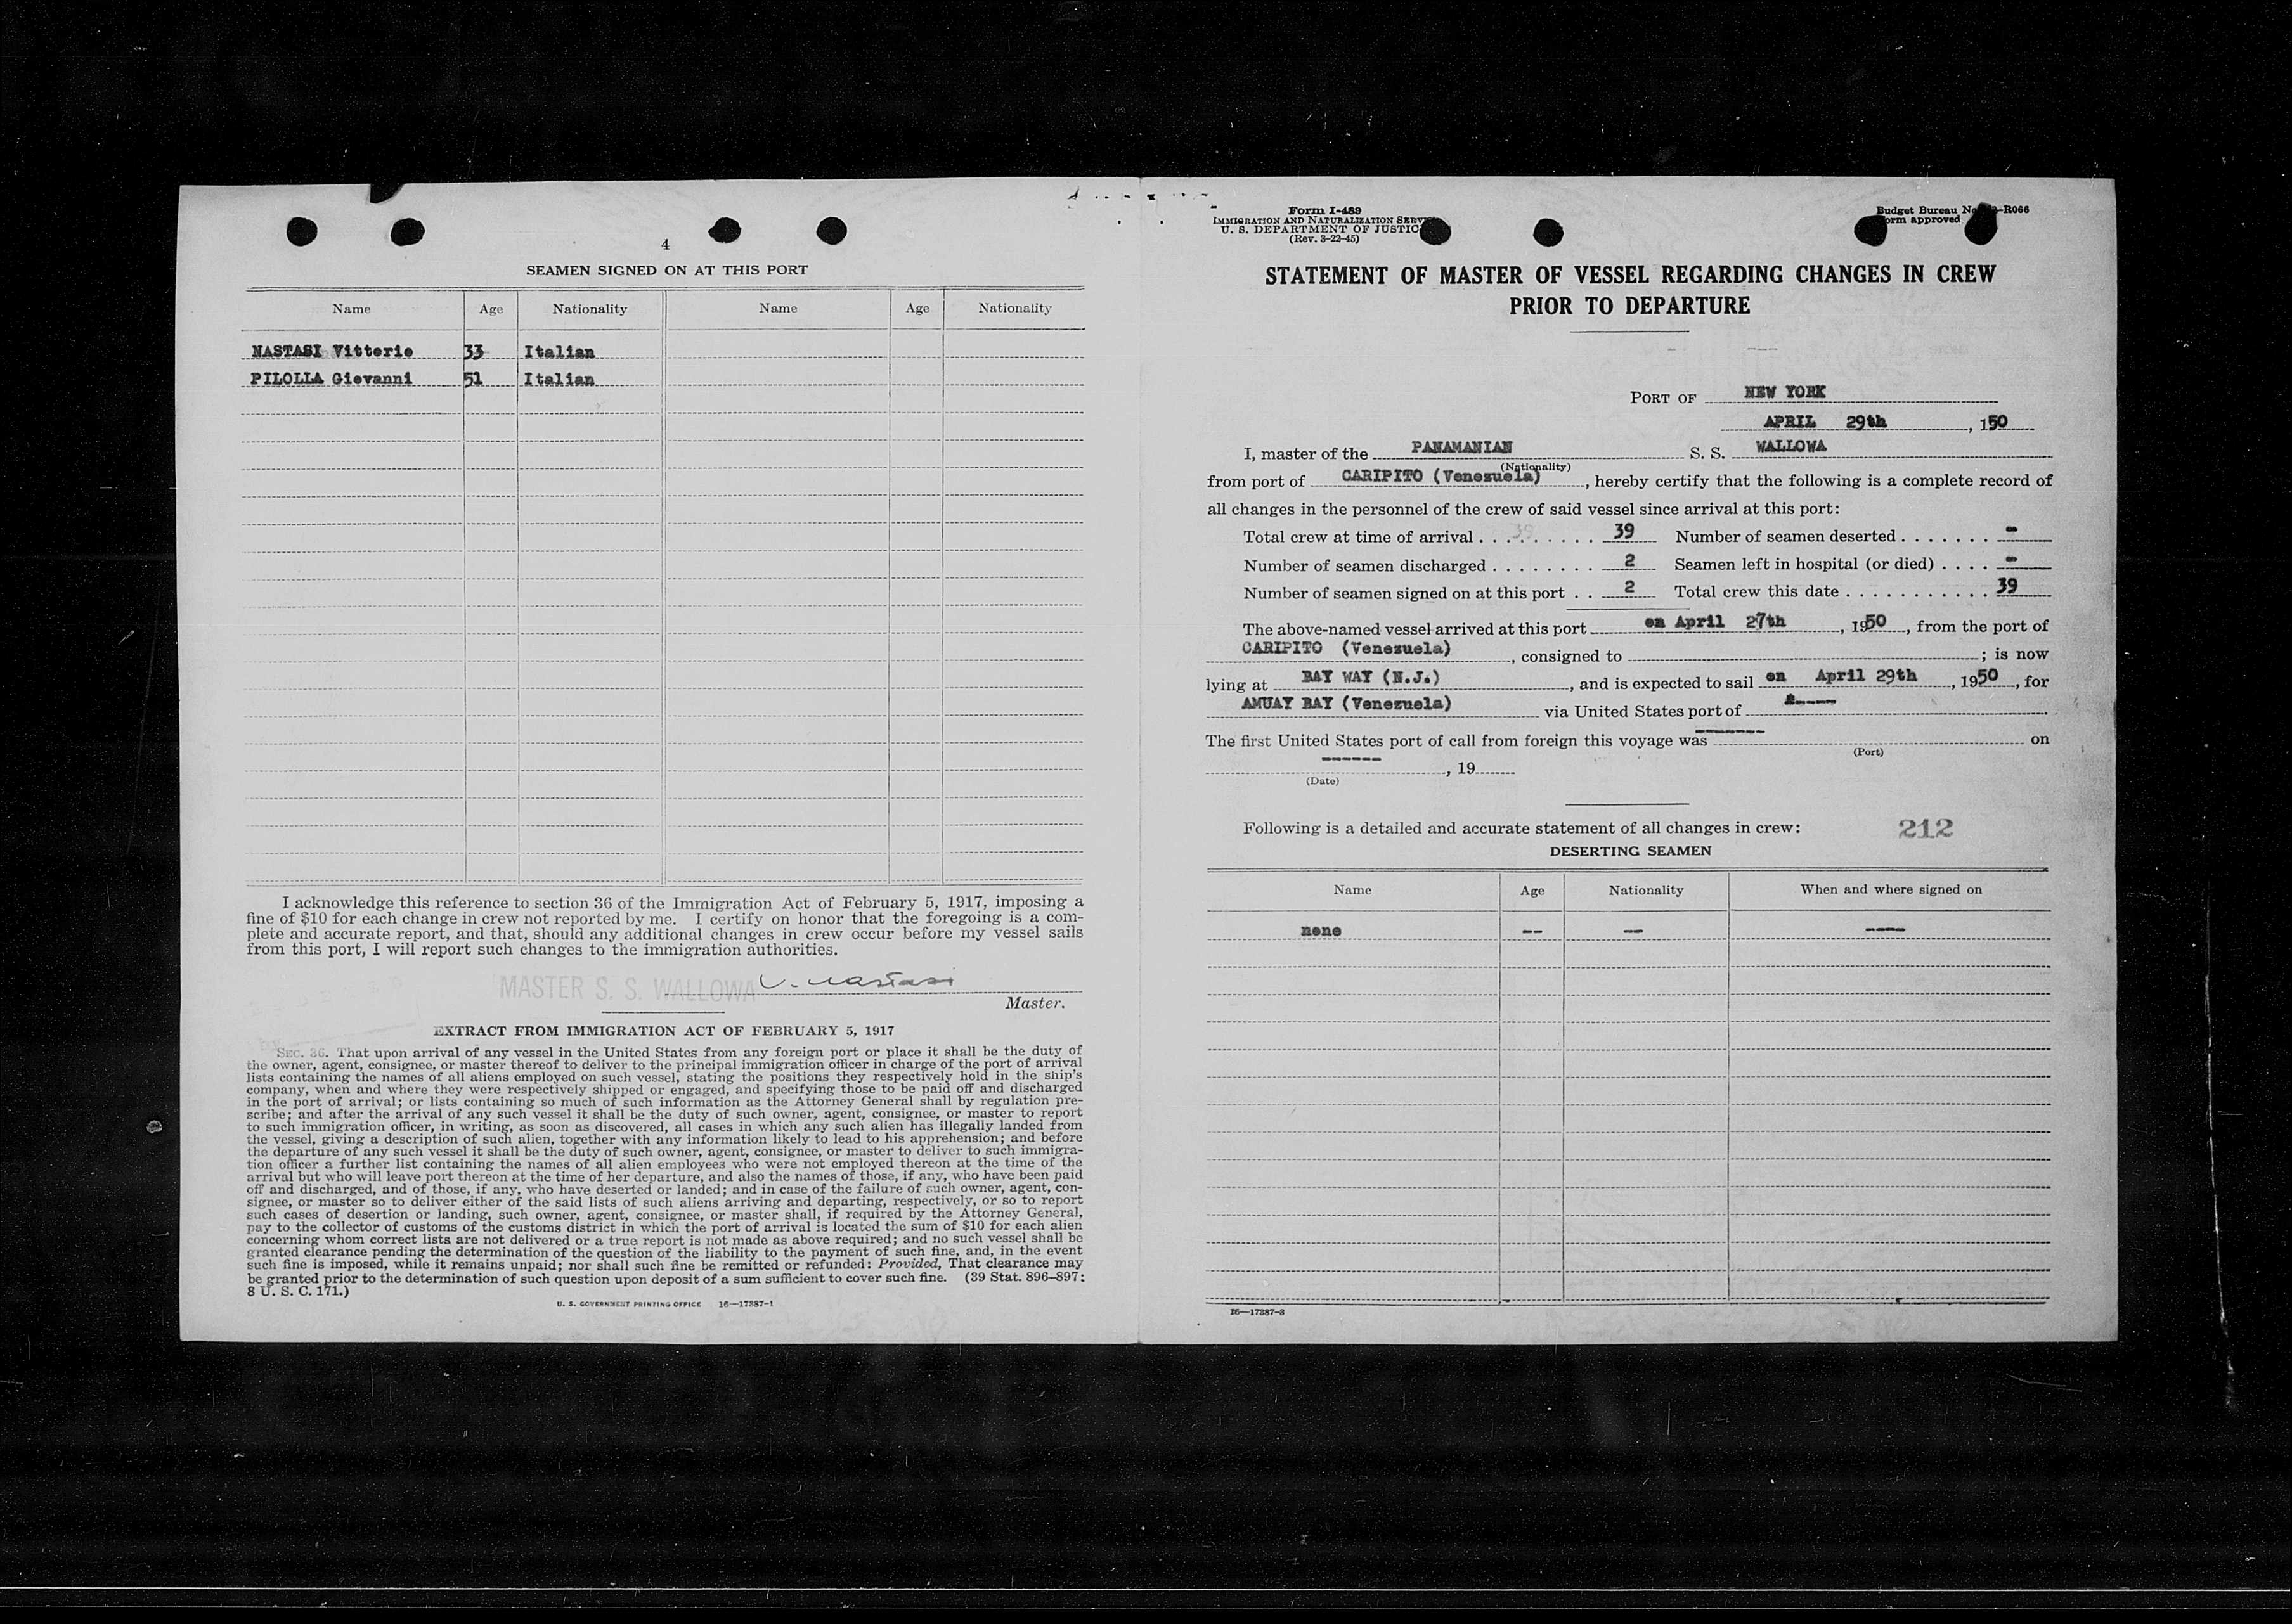 4
SEAMEN SIGNED ON AT THIS PORT
Name Age Nationality Name Age Nationality
NASTASI Vitterio 33 Italian
PILOLLA Giovanni 51 Italian
I acknowledge this reference to section 36 of the Immigration Act of February 5, 1917, imposing a
fine of $10 for each change in crew not reported by me. I certify on honor that the foregoing is a com-
plete and accurate report, and that, should any additional changes in crew occur before my vessel sails
from this port, I will report such changes to the immigration authorities.
MASTER S. S. WALLOWA V. Nastasi
Master.
EXTRACT FROM IMMIGRATION ACT OF FEBRUARY 5, 1917
SEC. 36. That upon arrival of any vessel in the United States from any foreign port or place it shall be the duty of
the owner, agent, consignee, or master thereof to deliver to the principal immigration officer in charge of the port of arrival
lists containing the names of all aliens employed on such vessel, stating the positions they respectively hold in the ship's
company, when and where they were respectively shipped or engaged, and specifying those to be paid off and discharged
in the port of arrival; or lists containing so much of such information as the Attorney General shall by regulation pre-
scribe; and after the arrival of any such vessel it shall be the duty of such owner, agent, consignee, or master to report
to such immigration officer, in writing, as soon as discovered, all cases in which any such alien has illegally landed from
the vessel, giving a description of such alien, together with any information likely to lead to his apprehension; and before
the departure of any such vessel it shall be the duty of such owner, agent, consignee, or master to deliver to such immigra-
tion officer a further list containing the names of all alien employees who were not employed thereon at the time of the
arrival but who will leave port thereon at the time of her departure, and also the names of those, if any, who have been paid
off and discharged, and of those, if any, who have deserted or landed; and in case of the failure of such owner, agent, con-
signee, or master so to deliver either of the said lists of such aliens arriving and departing, respectively, or so to report
such cases of desertion or landing, such owner, agent, consignee, or master shall, if required by the Attorney General,
pay to the collector of customs of the customs district in which the port of arrival is located the sum of $10 for each alien
concerning whom correct lists are not delivered or a true report is not made as above required; and no such vessel shall be
granted clearance pending the determination of the question of the liability to the payment of such fine, and, in the event
such fine is imposed, while it remains unpaid; nor shall such fine be remitted or refunded: Provided, That clearance may
be granted prior to the determination of such question upon deposit of a sum sufficient to cover such fine. (39 Stat. 896–897;
8 U. S. C. 171.)
U. S. GOVERNMENT PRINTING OFFICE 16—17387-1
Form I-489
IMMIGRATION AND NATURALIZATION SERV
U. S. DEPARTMENT OF JUSTIC
(Rev. 3-22-45)
Budget Bureau No. -R066
orm approved
STATEMENT OF MASTER OF VESSEL REGARDING CHANGES IN CREW
PRIOR TO DEPARTURE
PORT OF NEW YORK
APRIL 29th, 150
I, master of the PANAMANIAN S. S. WALLOWA
(Nationality)
from port of CARIPITO (Venezuela), hereby certify that the following is a complete record of
all changes in the personnel of the crew of said vessel since arrival at this port:
Total crew at time of arrival . . . . . . . . . 39 Number of seamen deserted . . . . . . . -
Number of seamen discharged . . . . . . . . 2 Seamen left in hospital (or died) . . . . -
Number of seamen signed on at this port . . 2 Total crew this date . . . . . . . . . . . 39
The above-named vessel arrived at this port on April 27th, 1950, from the port of
CARIPITO (Venezuela), consigned to ; is now
lying at BAY WAY (N.J.), and is expected to sail on April 29th, 1950, for
AMUAY BAY (Venezuela) via United States port of ----
The first United States port of call from foreign this voyage was ------- on
(Port)
------, 19
(Date)
Following is a detailed and accurate statement of all changes in crew: 212
DESERTING SEAMEN
Name Age Nationality When and where signed on
none -- -- ----
16—17387-3